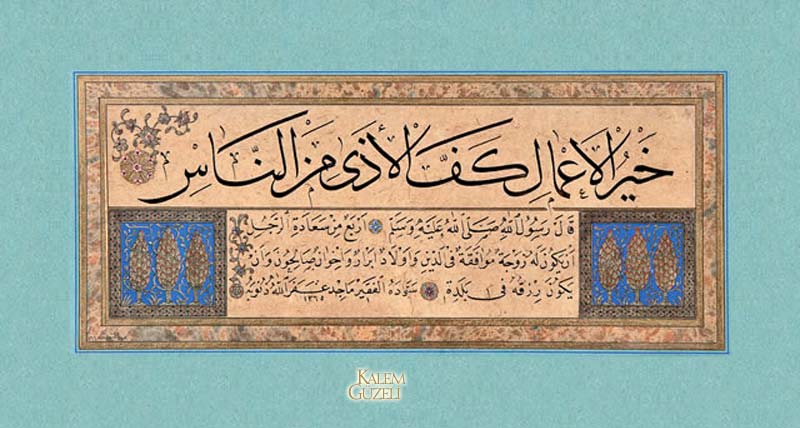 خَيْرُ الاَعْمَالِ كَفُّ الاَذَى مِنَ النَّاسِ
قَالَ رَسُولُ اللهِ صَلَّى اللهُ عَلَيْهِ وَسَلَّمَ اَرْبَعٌ مِنْ سَعَادَةِ الرَّجُلِ
اَنْ يَكُونَ لَهُ زَوْجَةٌ مُوَافِقَةٌ فِى الدِّينِ وَاَوْلَادٌ اَبْرَارٌ وَاِخْوَانٌ صَالِحُونَ وَاَنْ
يَكُونَ رِزْقُهُ فِى بَلَدِهِ سَوَّدَهُ الفَقِير مَاجِد غَفَرَ اللهُ ذُنُوبَهُ
١٣٦٥
KALEM
GÜZELİ